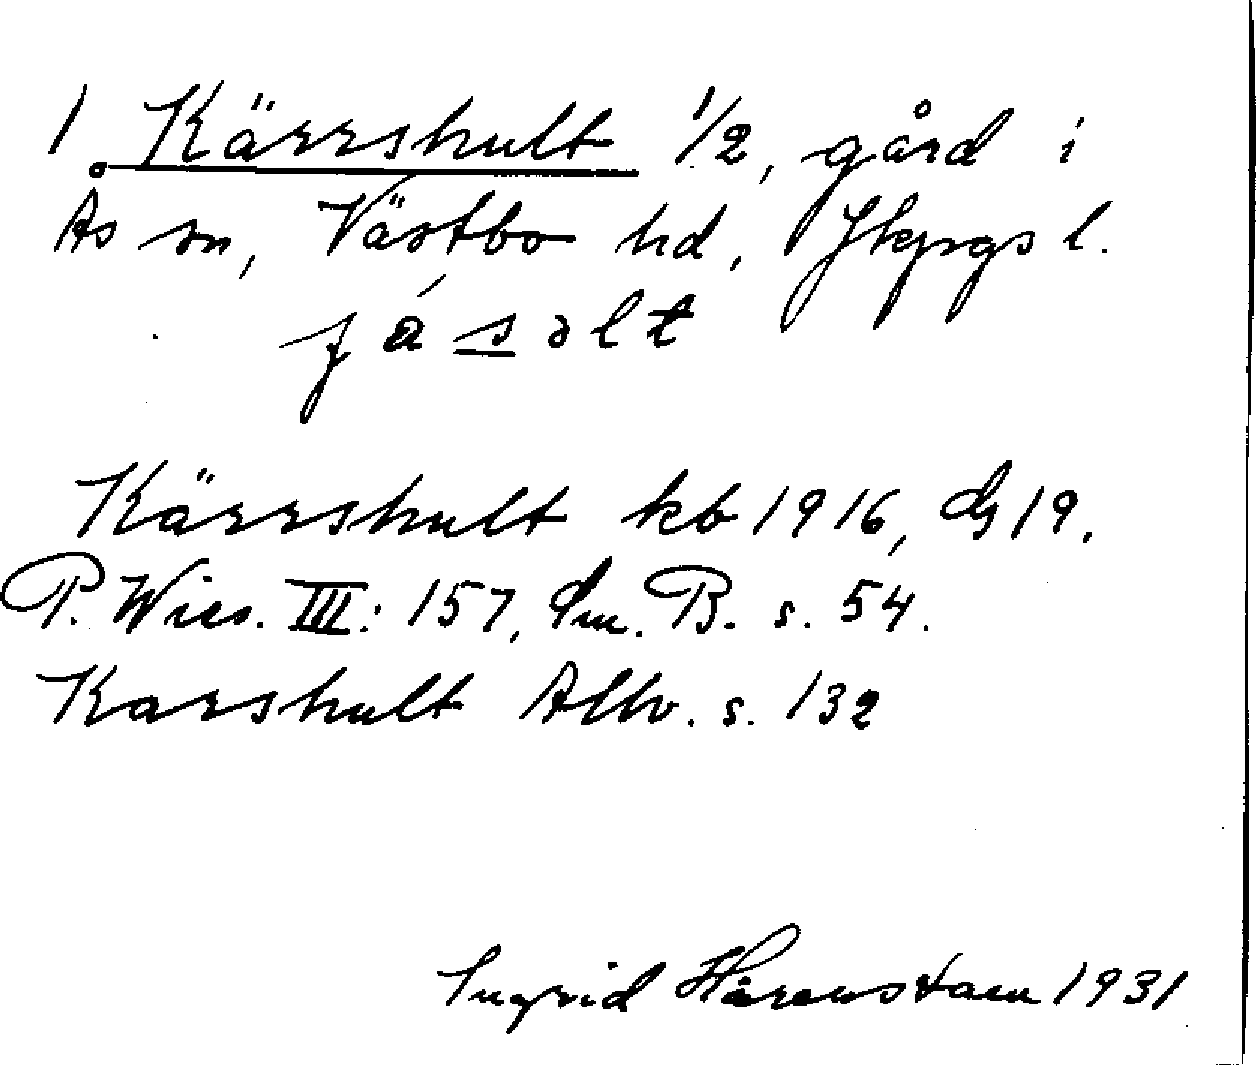 1 Kärrshult 1/2, gård i
Ås sn, Västbo hd, Jkpgs l.
Kärrshult kb 1916, 19.
P. Wies. III: 157, Sm. B. s. 54.
Karshult Allv. s. 132
Ingrid Härenstam 1931